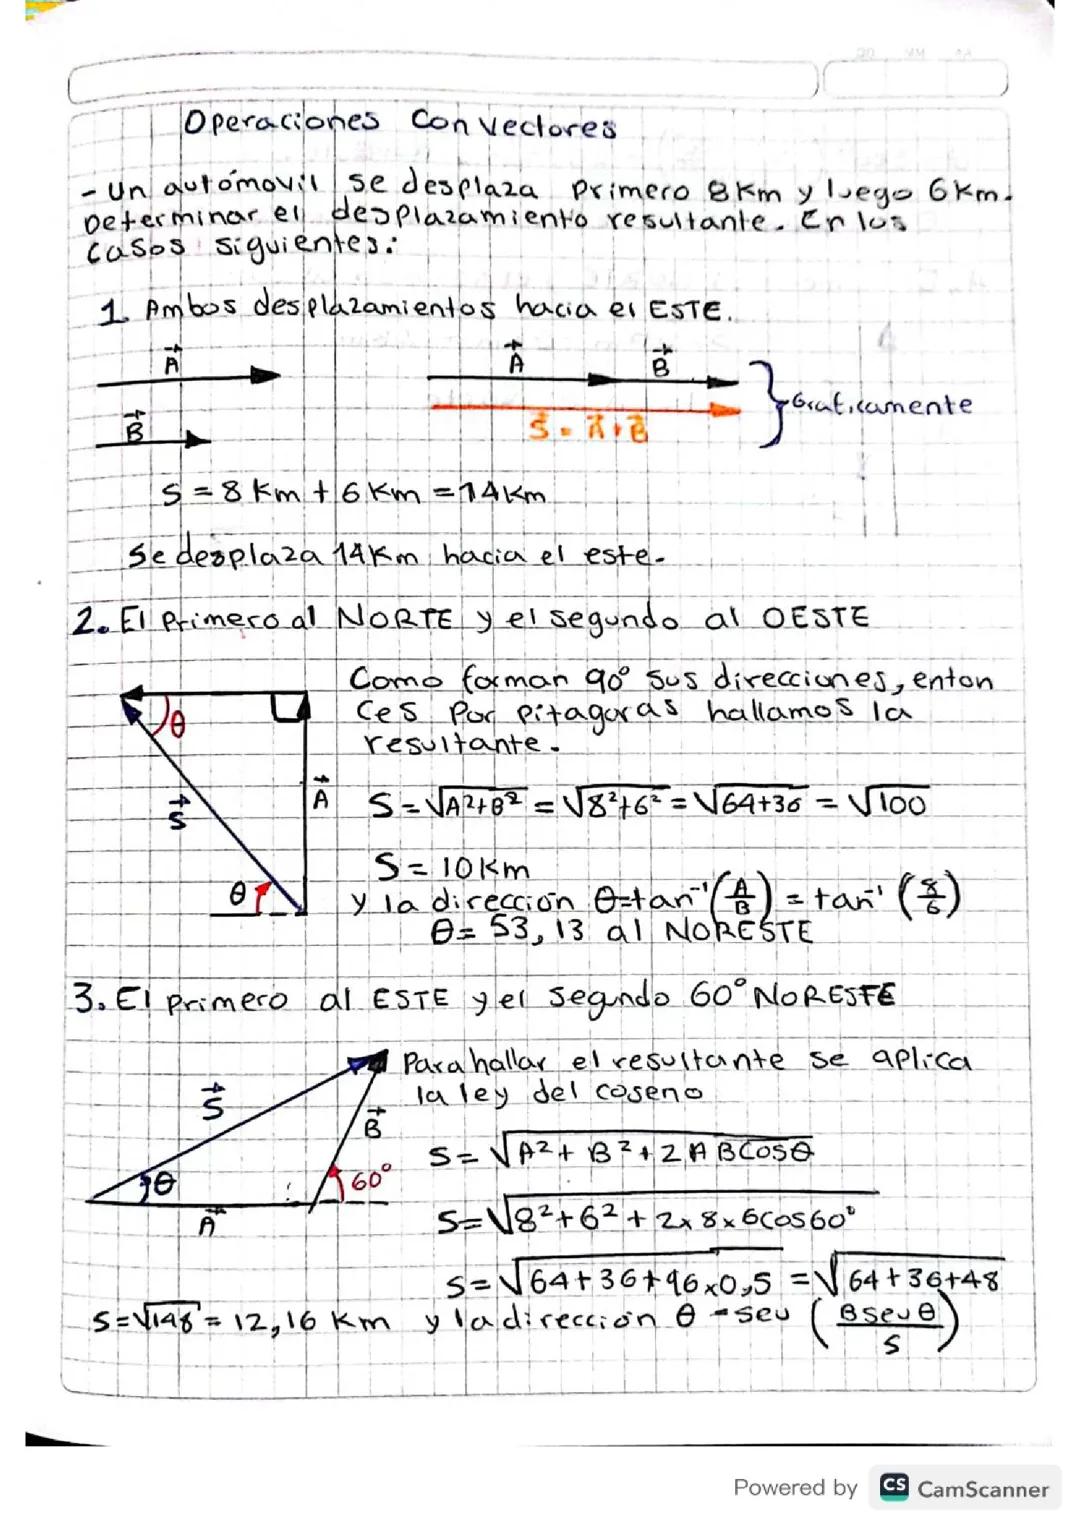 Operaciones Con Vectores
- Un automovil se desplaza primero 8Km y luego 6Km.
Determinar el desplazamiento resultante. En los
casos siguientes:
1. Ambos desplazamientos hacia el ESTE.
A
B
A B
S = A + B
Graficamente
S = 8 Km + 6 Km = 14Km
Se desplaza 14Km hacia el este.
2. El Primero al NORTE y el segundo al OESTE
Como forman 90° sus direcciones, enton
ces Por pitagoras hallamos la
resultante.
θ
S
A
θ
S = √A²+B² = √8²+6² = √64+36 = √100
S = 10Km
y la dirección θ=tan⁻¹(A/B) = tan⁻¹(8/6)
θ= 53,13 al NORESTE
3. El primero al ESTE y el segundo 60° NORESTE
Para hallar el resultante se aplica
la ley del coseno
S
B
θ
60°
A
S= √A²+B²+2ABCosθ
S=√8²+6²+2x8x6Cos60°
S=√64+36+96x0,5 =√64+36+48
S=√148 = 12,16 Km y la dirección θ = sen (Bsenθ/S)
Powered by CS CamScanner